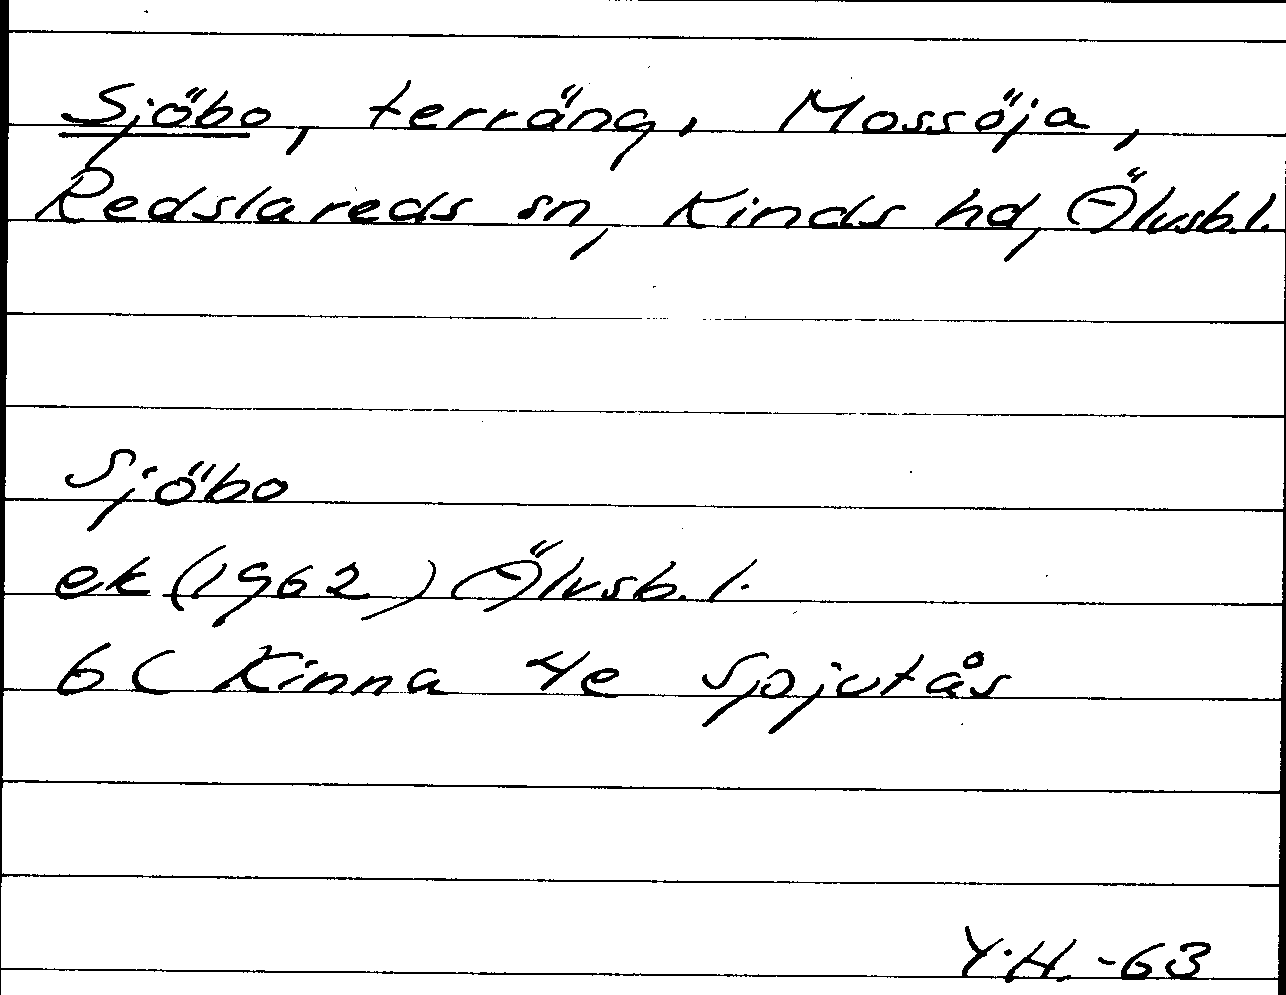 Sjöbo, terräng, Mossöja,
Redslareds sn, Kinds hd, Älvsb.l.
Sjöbo
ek (1962) Älvsb. l.
6 C Kinna 4e Spjutås
Y.H. -63